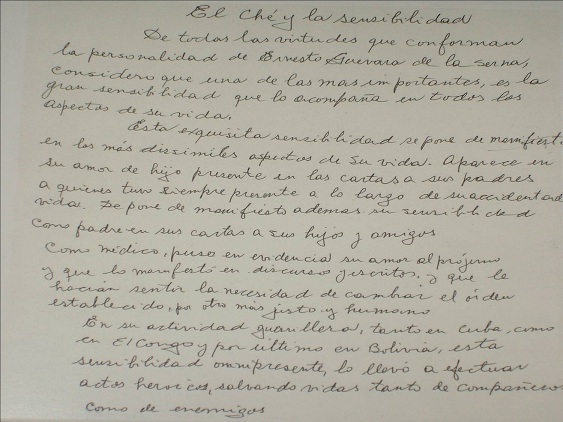 El Ché y la sensibilidad
De todas las virtudes que conforman
la personalidad de Ernesto Guevara de la Serna,
considero que una de las mas importantes, es la
gran sensibilidad que lo acompaña en todos los
aspectos de su vida.
Esta exquisita sensibilidad se pone de manifiesto
en los más disímiles aspectos de su vida. Aparece en
su amor de hijo presente en las cartas a sus padres
a quienes tuvo siempre presente a lo largo de su accidentad
vida. Se pone de manifiesto ademas su sensibilidad
como padre en sus cartas a sus hijos y amigos
Como médico, puso en evidencia su amor al prójimo
y que lo manifestó en discursos y escritos, y que le
hacían sentir la necesidad de cambiar el órden
establecido, por otro más justo y humano
En su actividad guerrillera, tanto en Cuba, como
en El Congo y por último en Bolivia, esta
sensibilidad omnipresente, lo llevó a efectuar
actos heroicos, salvando vidas tanto de compañeros
como de enemigos